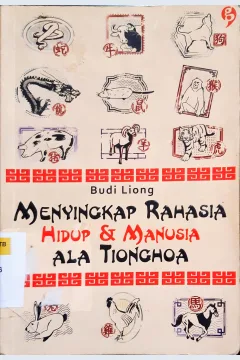 蛇
牛
狗
猴
羊
虎
Budi Liong
MENYINGKAP RAHASIA
HIDUP & MANUSIA
ALA TIONGHOA
馬